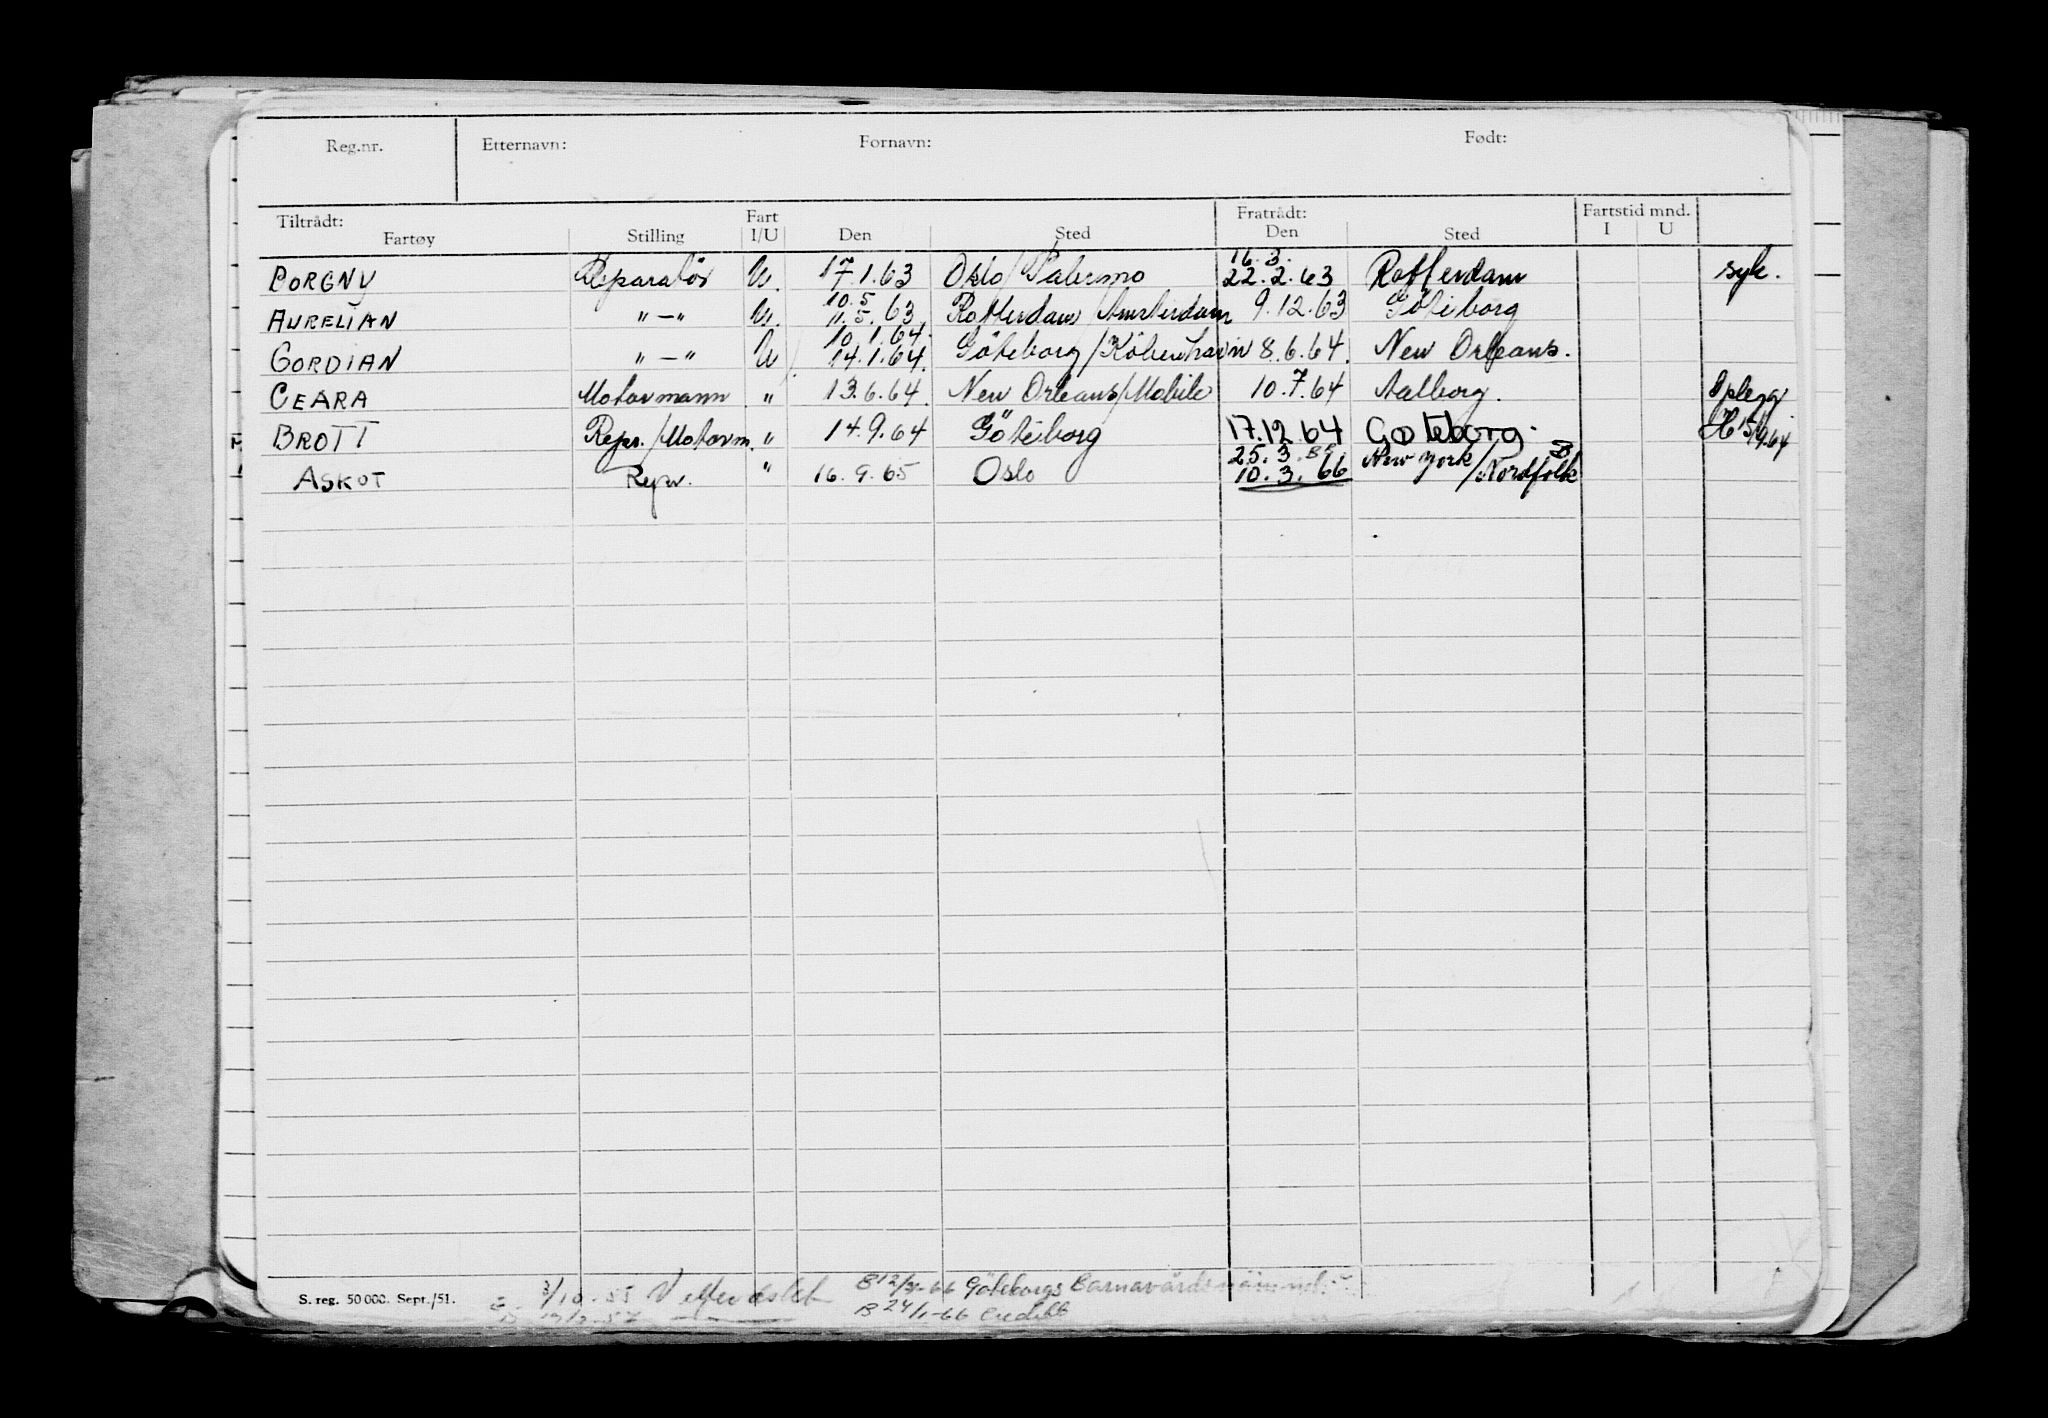 Reg.nr. Etternavn: Fornavn: Født:
Tiltrådt: Fart Fratrådt: Fartstid mnd.
Fartøy Stilling I/U Den Sted Den Sted I U
16.3.
PORGNY Reparatör U. 17.1.63 Oslo/Palermo 22.2.63 Rotterdam syk.
10.5
AURELIAN "—" U. 11.5.63 Rotterdam/Amsterdam 9.12.63 Göteborg
10.1.64.
GORDIAN "—" U 14.1.64. Göteborg/Köbenhavn 8.6.64. New Orleans.
CEARA Motormann " 13.6.64. New Orleans/Mobile 10.7.64 Aalborg. Oplegg
BROTT Repr./Motorm. " 14.9.64 Göteborg 17.12.64 Goteborg.
25.3. New York/
ASKOT Repr. " 16.9.65 Oslo 10.3.66 Nordfolk
S. reg. 50 000. Sept./51.
3/10-55
B 12/3-66 Göteborgs Barnavårdsnämnd
B 24/1-66